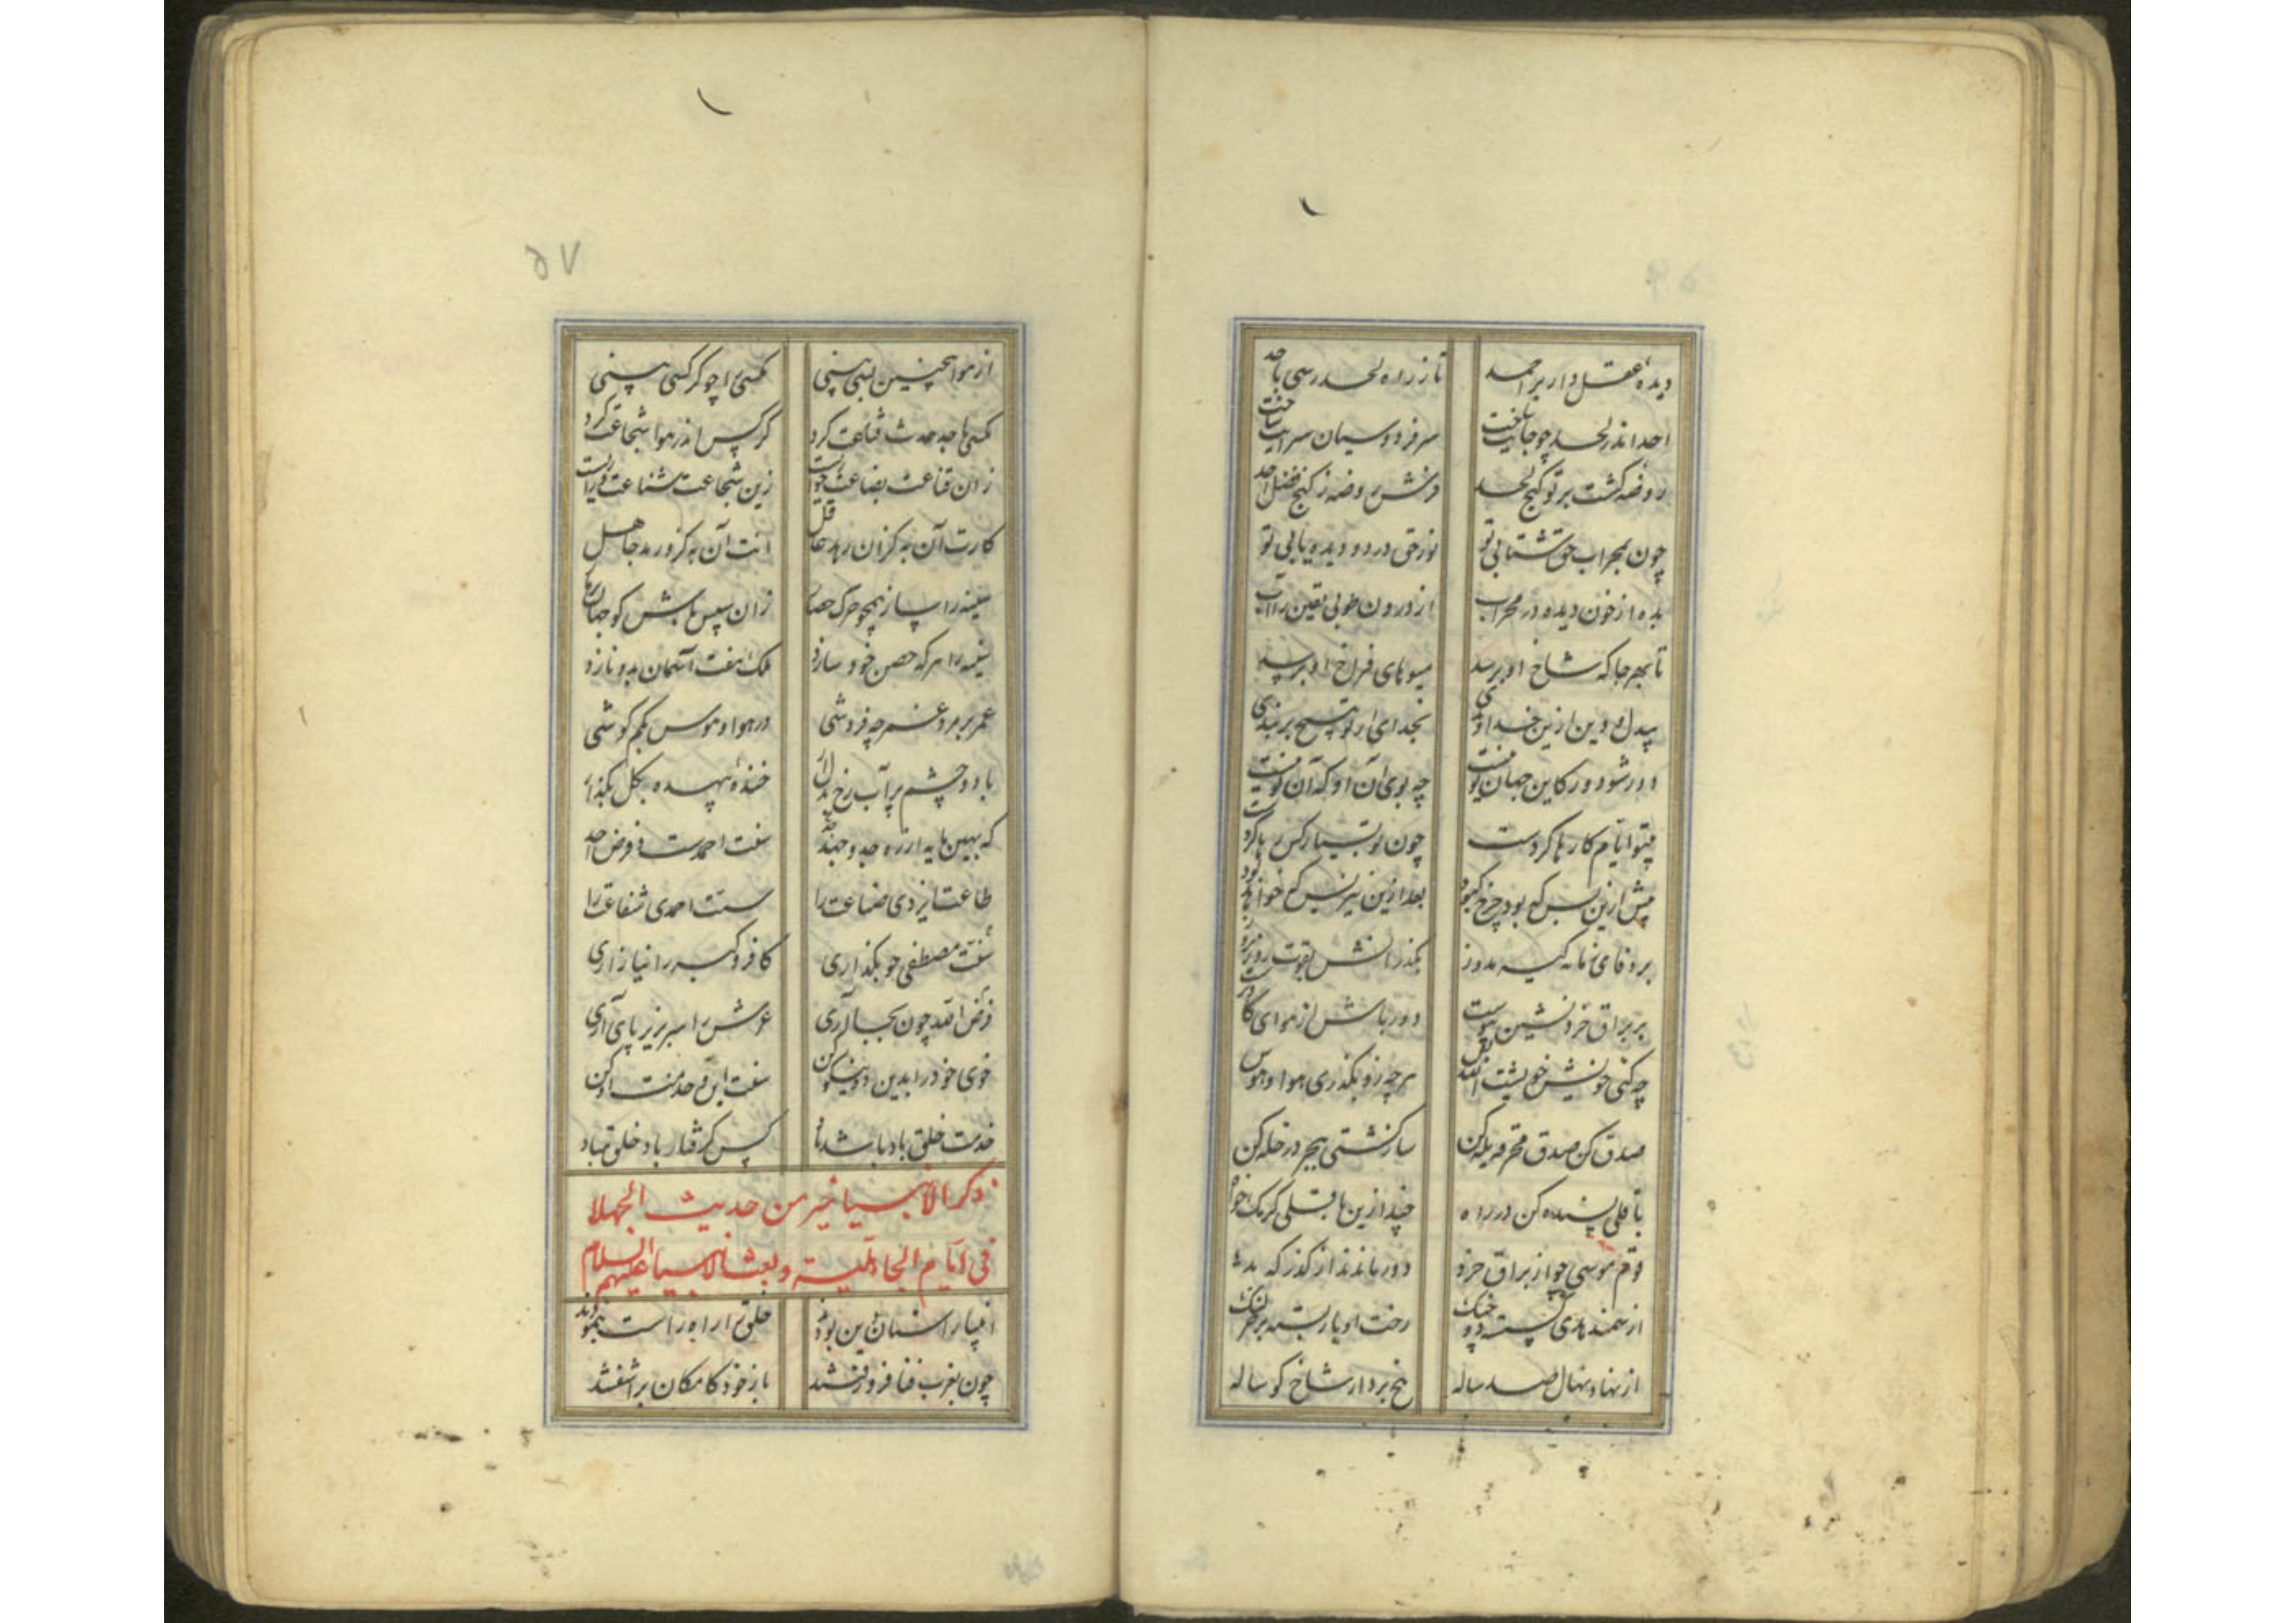 دیده عقل دار بر احمد
تا ز راه لحد رسی باحد
احد اندر لحد چو جانت
سر فردوسیان سرایت ساخت
روضه گشت بر تو کنج لحد
فرش روضه ز گنج فضل احد
چون بمحراب حق شتابی تو
نور حق در دو دیده یابی تو
بده از خون دیده در محراب
از درون طوبی یقین را آب
تا بهر جا که شاخ او برسد
میوهای فراخ او برسد
دین ازین خداوندی
بخدای ار تو هیچ بربندی
دور شو دور کاین جهان تو نیست
چه بوی آن او که آن تو نیست
بیتو ایام کارها کردست
چون تو بسیار کس بیاوردست
پیش ازین بس که بود چرخ کبود
بعد ازین نیز بس که خواهد بود
بر وفای زمانه کیسه مدوز
بگذرانش بقوت روز بروز
بر براق خرد نشین پیوست
دور باش از هوای
چه کنی خویش خویشت الله بس
هرچه زو بگذری هوا و هوس
صدق کن صدق
ساز کشتی بجر دخله کن
باقلی بنده کن در راه
چند ازین باقلی گرمک خواه
قوم موسی چو از براق خرد
دور ماندند از گذرگه بد
از سمند هدی گسسته دو خنگ
رخت ادبار بسته بر خر لنگ
از نهاد نهال صد ساله
بیخ بردار شاخ گوساله
۵۷
از هوا همچنین بسی بینی
مگسی را چو کرکسی بینی
مگس با جد حدث قناعت کرد
کرکس اندر هوا شجاعت کرد
زان قناعت بضاعت خواست
زین شجاعت شناعت
کارت آن به کزان رهد عاقل
آنت آن به کزو رمد جاهل
سینه را ساز همچو مرگ حصار
زان سپس باش گو جهان
سینه را هر که حصن خود سازد
ملک هفت آسمان بدو نازد
عمر بر مرد غمر چه فروشی
در هوا و هوس بکم کوشی
با دو چشم پر آب رخ
خنده بیهده بگل بگذار
که بهین مایه از ره جد و جهد
سنت احمدست و فرض احد
طاعت ایزدی ضاعت را
سنت احمدی شفاعت را
سنت مصطفی چو بگذاری
کافر و گبر را نیازاری
فرض الله چون بجای آری
عرش را سر بزیر پای آری
خوی خود را بدین دو نیکو کن
سنت این و خدمت او کن
خدمت خلق باد باشد باد
کس گرفتار باد خلق مباد
ذکر الانبیا خیر من حدیث الجهلا
فی ایام الجاهلیة و بعث الانبیا علیهم السلام
انبیا راستان دین بودند
خلق را راه راست بنمودند
چون بغرب فنا فرو رفتند
باز خودکامگان بر آشفتند